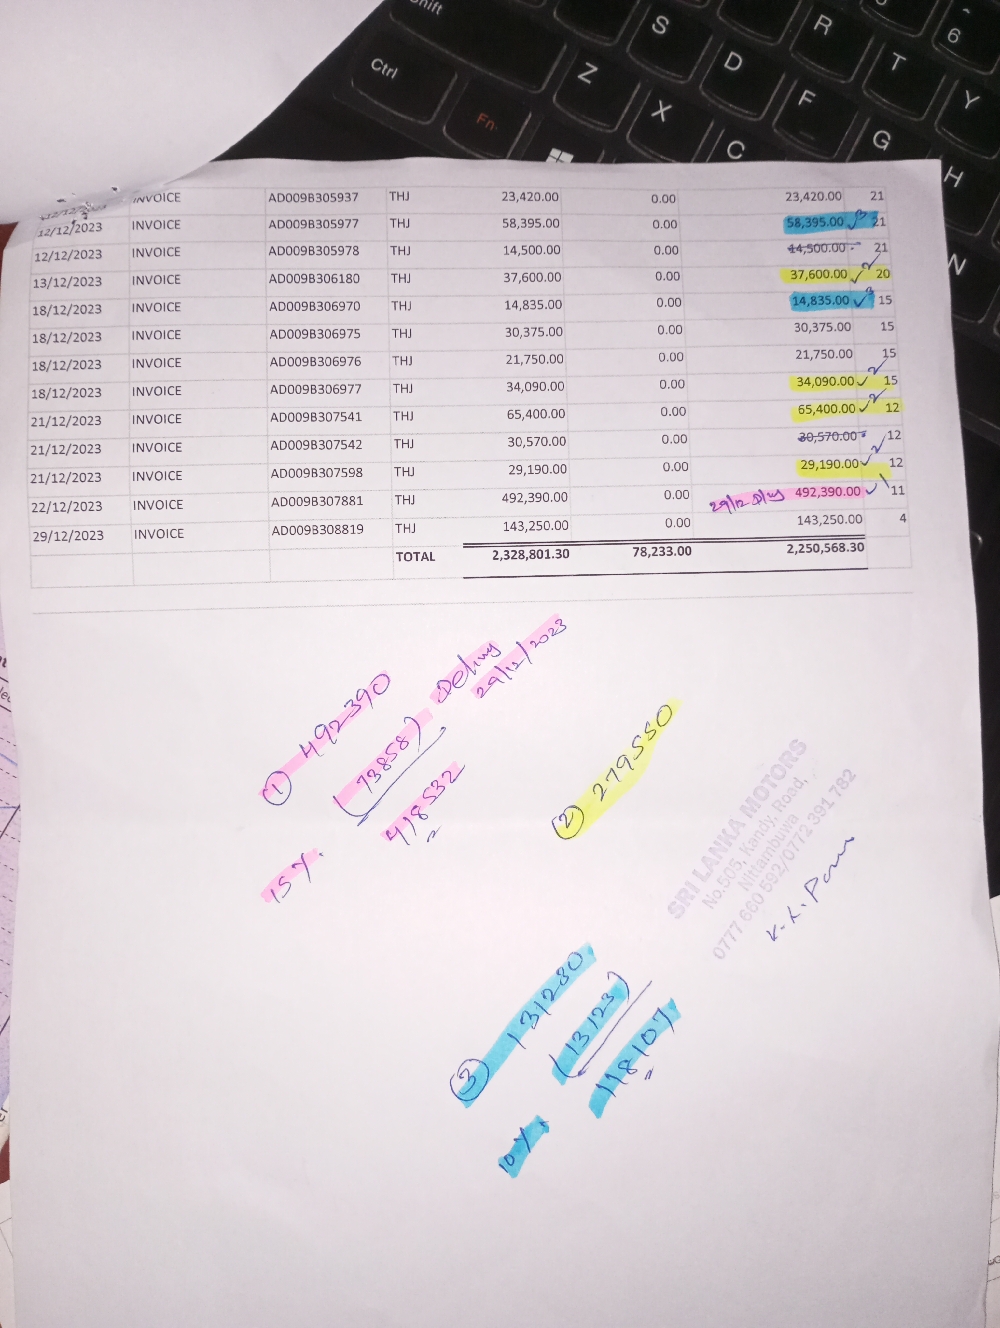 Shift
S
R
6
Ctrl
Z
D
T
Fn
X
F
Y
C
G
H
N
12/12/2023 INVOICE AD009B305937 THJ 23,420.00 0.00 23,420.00 21
12/12/2023 INVOICE AD009B305977 THJ 58,395.00 0.00 58,395.00 ✓3 21
12/12/2023 INVOICE AD009B305978 THJ 14,500.00 0.00 14,500.00 21
13/12/2023 INVOICE AD009B306180 THJ 37,600.00 0.00 37,600.00 ✓2 20
18/12/2023 INVOICE AD009B306970 THJ 14,835.00 0.00 14,835.00 ✓3 15
18/12/2023 INVOICE AD009B306975 THJ 30,375.00 0.00 30,375.00 15
18/12/2023 INVOICE AD009B306976 THJ 21,750.00 0.00 21,750.00 15
18/12/2023 INVOICE AD009B306977 THJ 34,090.00 0.00 34,090.00 ✓2 15
21/12/2023 INVOICE AD009B307541 THJ 65,400.00 0.00 65,400.00 ✓2 12
21/12/2023 INVOICE AD009B307542 THJ 30,570.00 0.00 30,570.00 12
21/12/2023 INVOICE AD009B307598 THJ 29,190.00 0.00 29,190.00 ✓2 12
22/12/2023 INVOICE AD009B307881 THJ 492,390.00 0.00 29/12 492,390.00 ✓1 11
29/12/2023 INVOICE AD009B308819 THJ 143,250.00 0.00 143,250.00 4
TOTAL 2,328,801.30 78,233.00 2,250,568.30
① 492390
Delivy
29/12/2023
15% (73858)
418532
② 279550
SRI LANKA MOTORS
No.505, Kandy, Road,
Nittambuwa
0777 660 592/0772 391 782
③ 131230
10% (13123)
118107